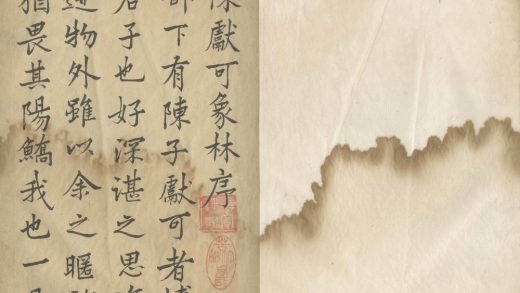 獻可象林序
下有陳子獻可者博
君子也好深湛之思
物外雖以余之暱
猶畏其陽鱎我也一